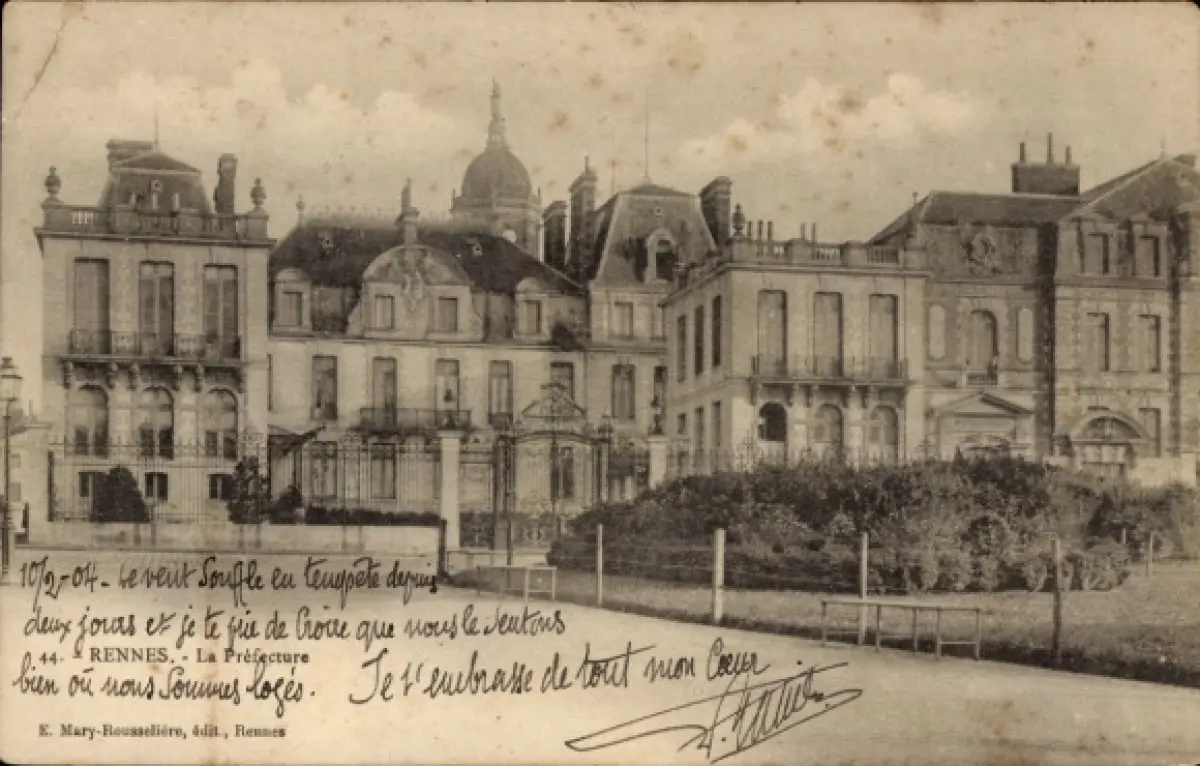 10/2-04 - Le vent Souffle en tempête depuis
deux jours et je te prie de Croire que nous le Sentons
44. - RENNES. - La Préfecture
bien où nous Sommes logés. Je t'embrasse de tout mon Cœur
E. Mary-Rousselière, édit., Rennes